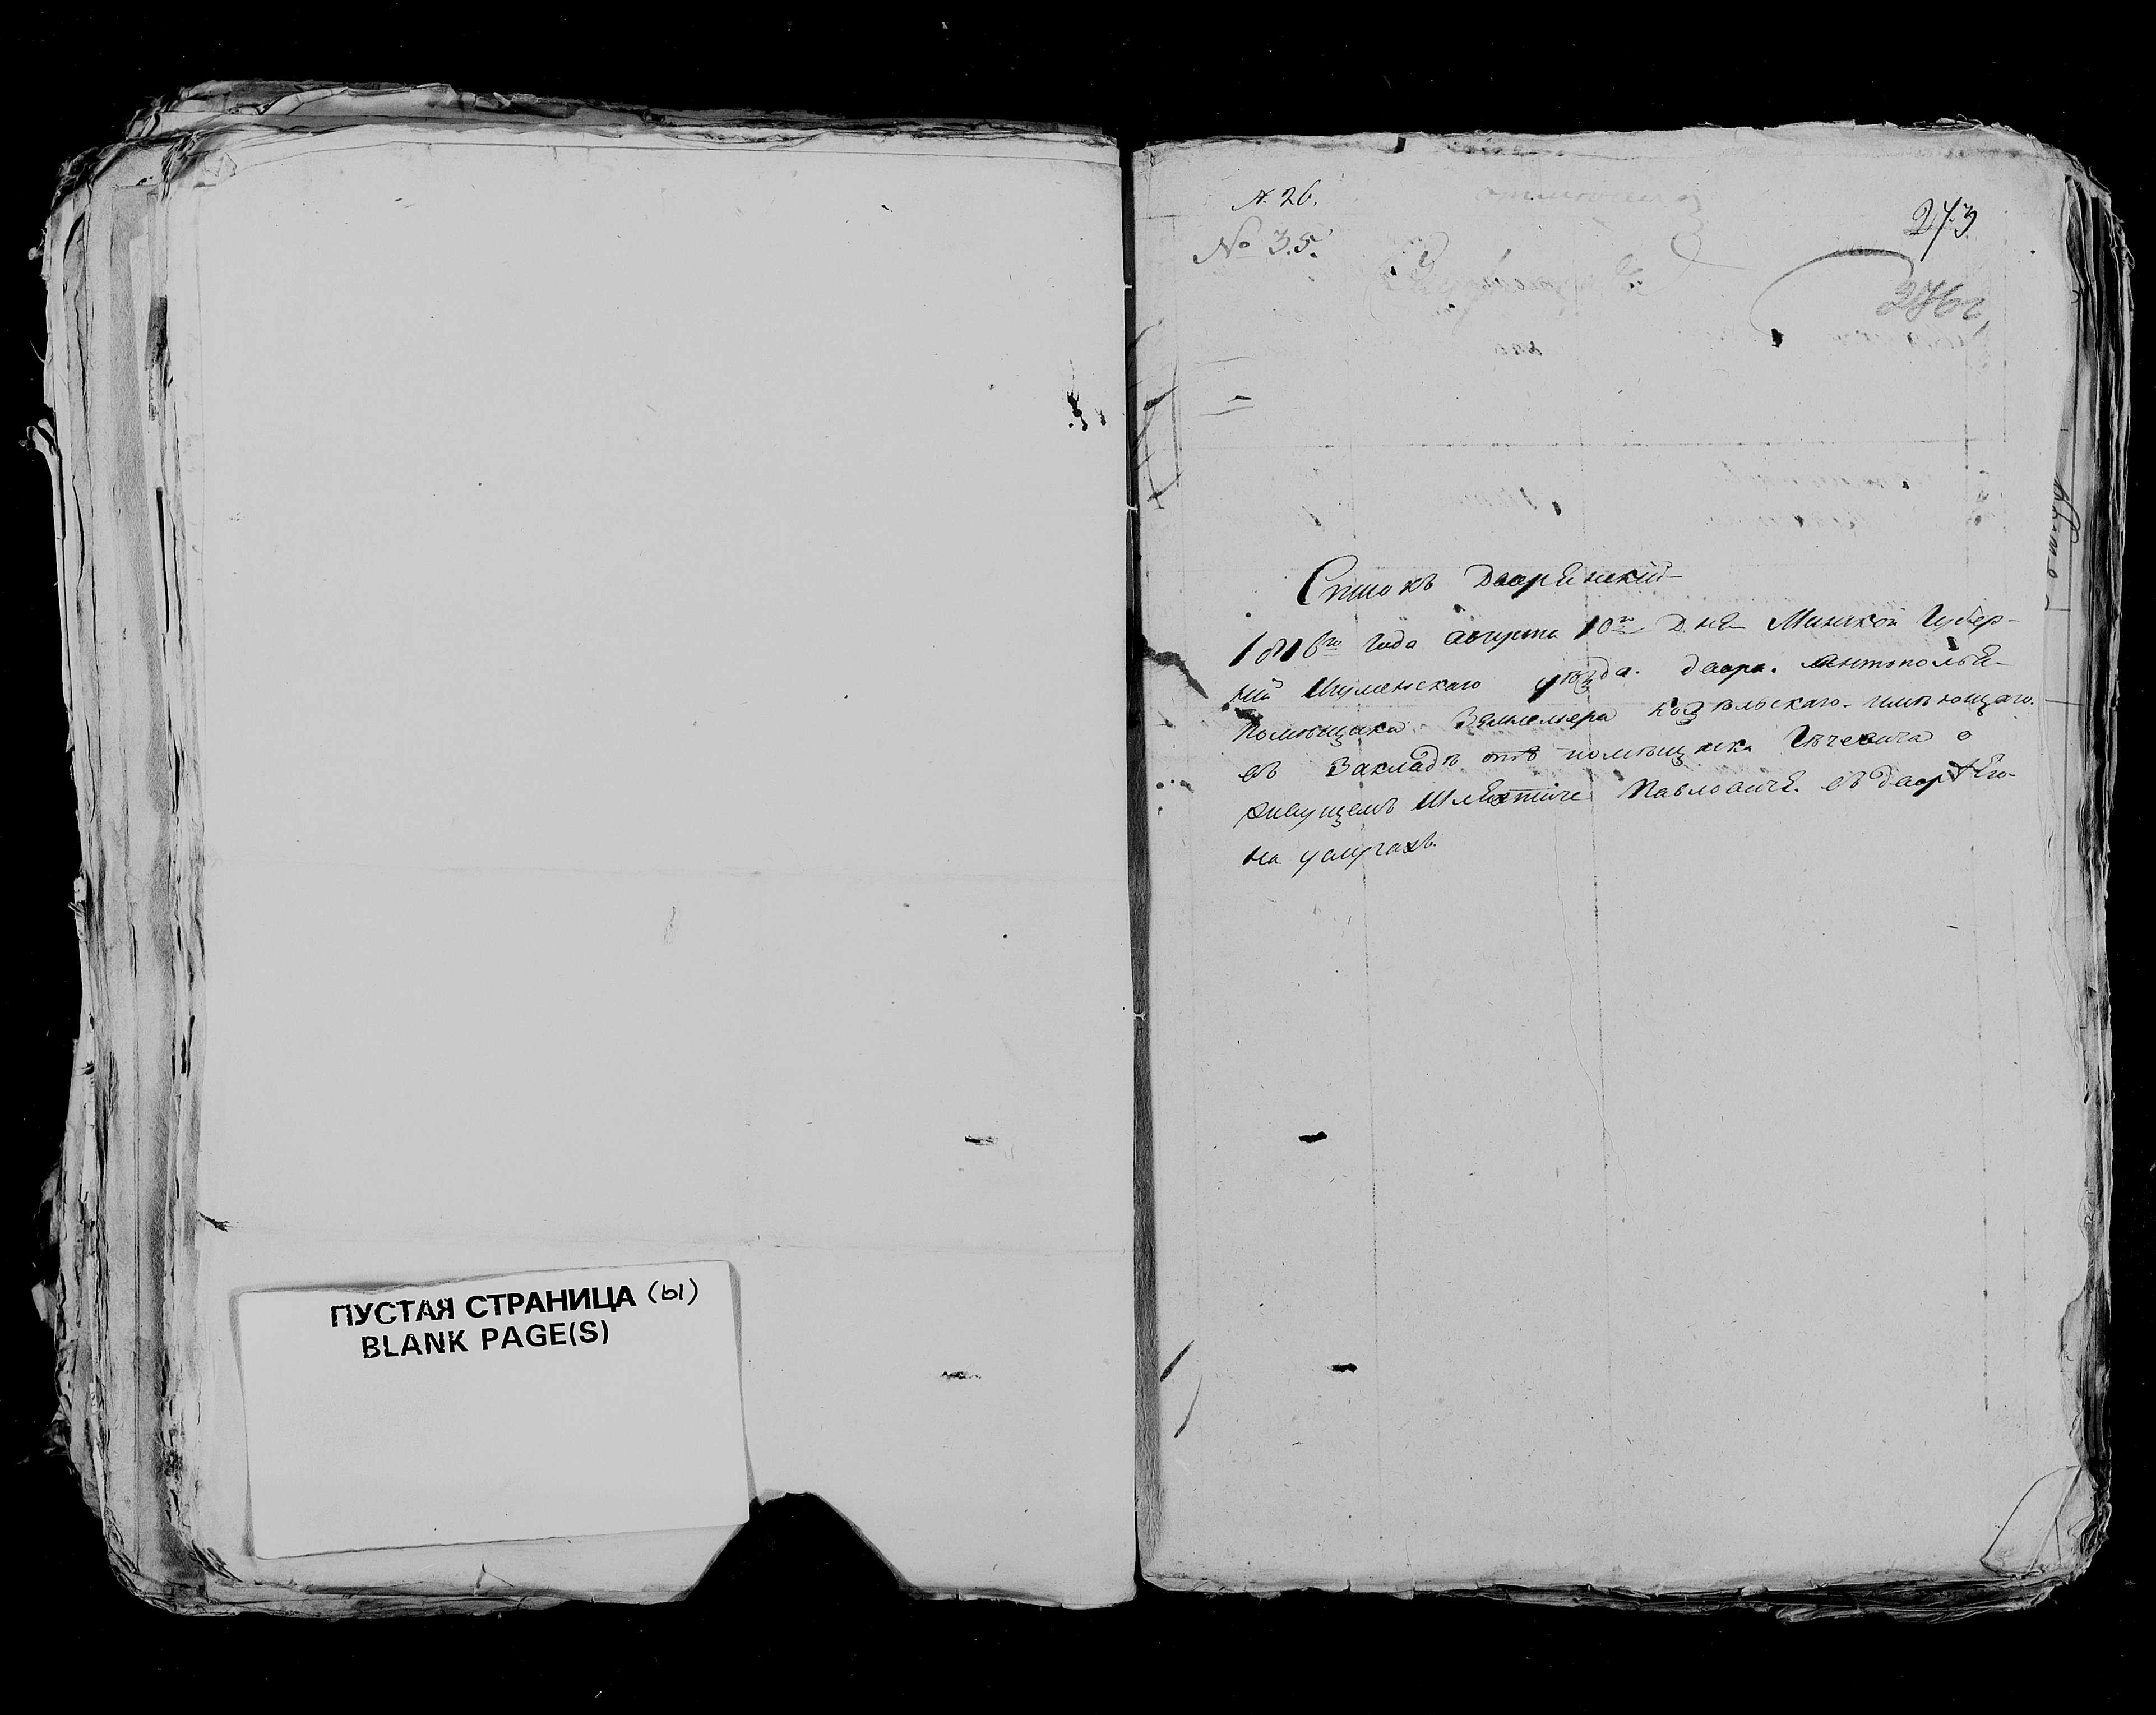 ПУСТАЯ СТРАНИЦА (ы)
BLANK PAGE(S)
№ 26.
№ 35.
273
Списокъ Дворянский
1816го Года августа 10го Дня Минской Губер-
нии Игуменскаго уѣзда. двора. Антополья-
Помѣщика Землемера Козѣльскаго. имѣющаго.
въ Закладѣ отъ помѣщика Гѣчевича о
живущемъ Шляхтиче Павловиче. въ дворѣ Его-
на услугахъ.